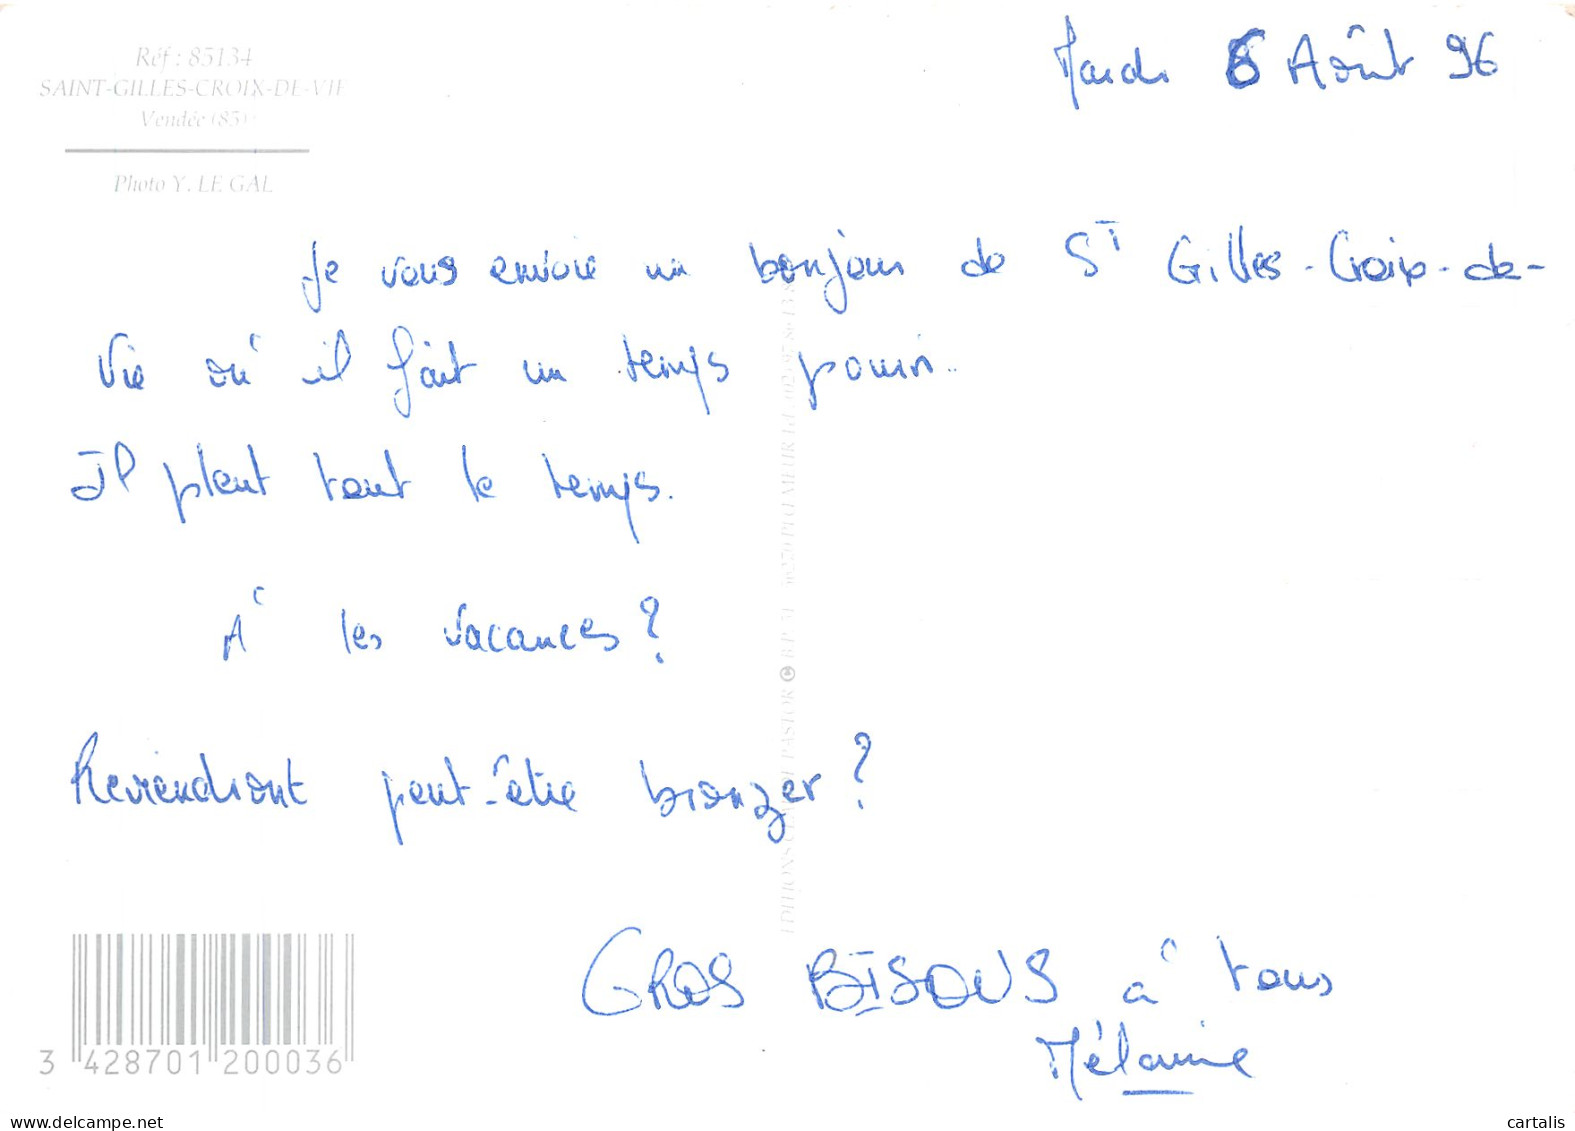 Réf : 85134
SAINT-GILLES-CROIX-DE-VIE
Vendée (85)
Photo Y. LE GAL
Mardi 6 Août 96
Je vous envoie un bonjour de St Gilles-Croix-de-
Vie où il fait un temps pourri..
Il pleut tout le temps.
A les vacances ?
Reviendront peut-être bronzer ?
GROS BISOUS à tous
Mélanie
3 428701 200036
www.delcampe.net
cartalis